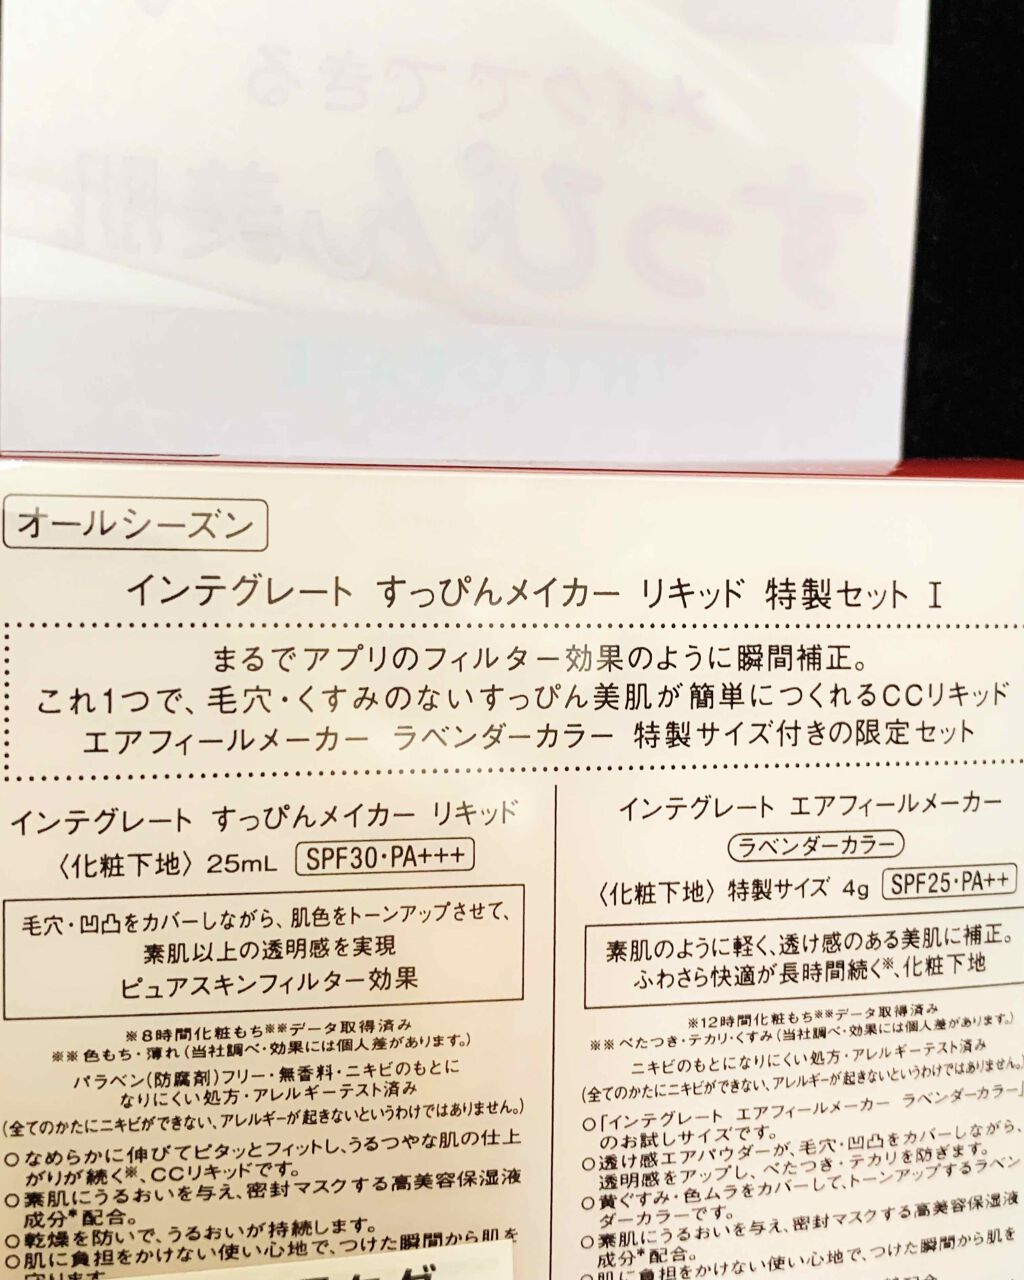 メイクでできる
すっぴん美肌
オールシーズン
インテグレート すっぴんメイカー リキッド 特製セット I
まるでアプリのフィルター効果のように瞬間補正。
これ1つで、毛穴・くすみのないすっぴん美肌が簡単につくれるCCリキッド
エアフィールメーカー ラベンダーカラー 特製サイズ付きの限定セット
インテグレート すっぴんメイカー リキッド
〈化粧下地〉 25mL SPF30・PA+++
毛穴・凹凸をカバーしながら、肌色をトーンアップさせて、
素肌以上の透明感を実現
ピュアスキンフィルター効果
※8時間化粧もち※※データ取得済み
※※ 色もち・薄れ(当社調べ・効果には個人差があります。)
パラベン(防腐剤)フリー・無香料・ニキビのもとに
なりにくい処方・アレルギーテスト済み
(全てのかたにニキビができない、アレルギーが起きないというわけではありません。)
○なめらかに伸びてピタッとフィットし、うるつやな肌の仕上
がりが続く※、CCリキッドです。
○素肌にうるおいを与え、密封マスクする高美容保湿液
成分*配合。
○乾燥を防いで、うるおいが持続します。
○肌に負担をかけない使い心地で、つけた瞬間から肌を
守ります
インテグレート エアフィールメーカー
ラベンダーカラー
〈化粧下地〉 特製サイズ 4g SPF25・PA++
素肌のように軽く、透け感のある美肌に補正。
ふわさら快適が長時間続く※、化粧下地
※12時間化粧もち※※データ取得済み
※※ べたつき・テカリ・くすみ(当社調べ・効果には個人差があります。)
ニキビのもとになりにくい処方・アレルギーテスト済み
(全てのかたにニキビができない、アレルギーが起きないというわけではありません。)
○「インテグレート エアフィールメーカー ラベンダーカラー」
のお試しサイズです。
○透け感エアパウダーが、毛穴・凹凸をカバーしながら、
透明感をアップし、べたつき・テカリを防ぎます。
○黄ぐすみ・色ムラをカバーして、トーンアップするラベン
ダーカラーです。
○素肌にうるおいを与え、密封マスクする高美容保湿液
成分*配合。
○肌に負担をかけない使い心地で、つけた瞬間から肌を